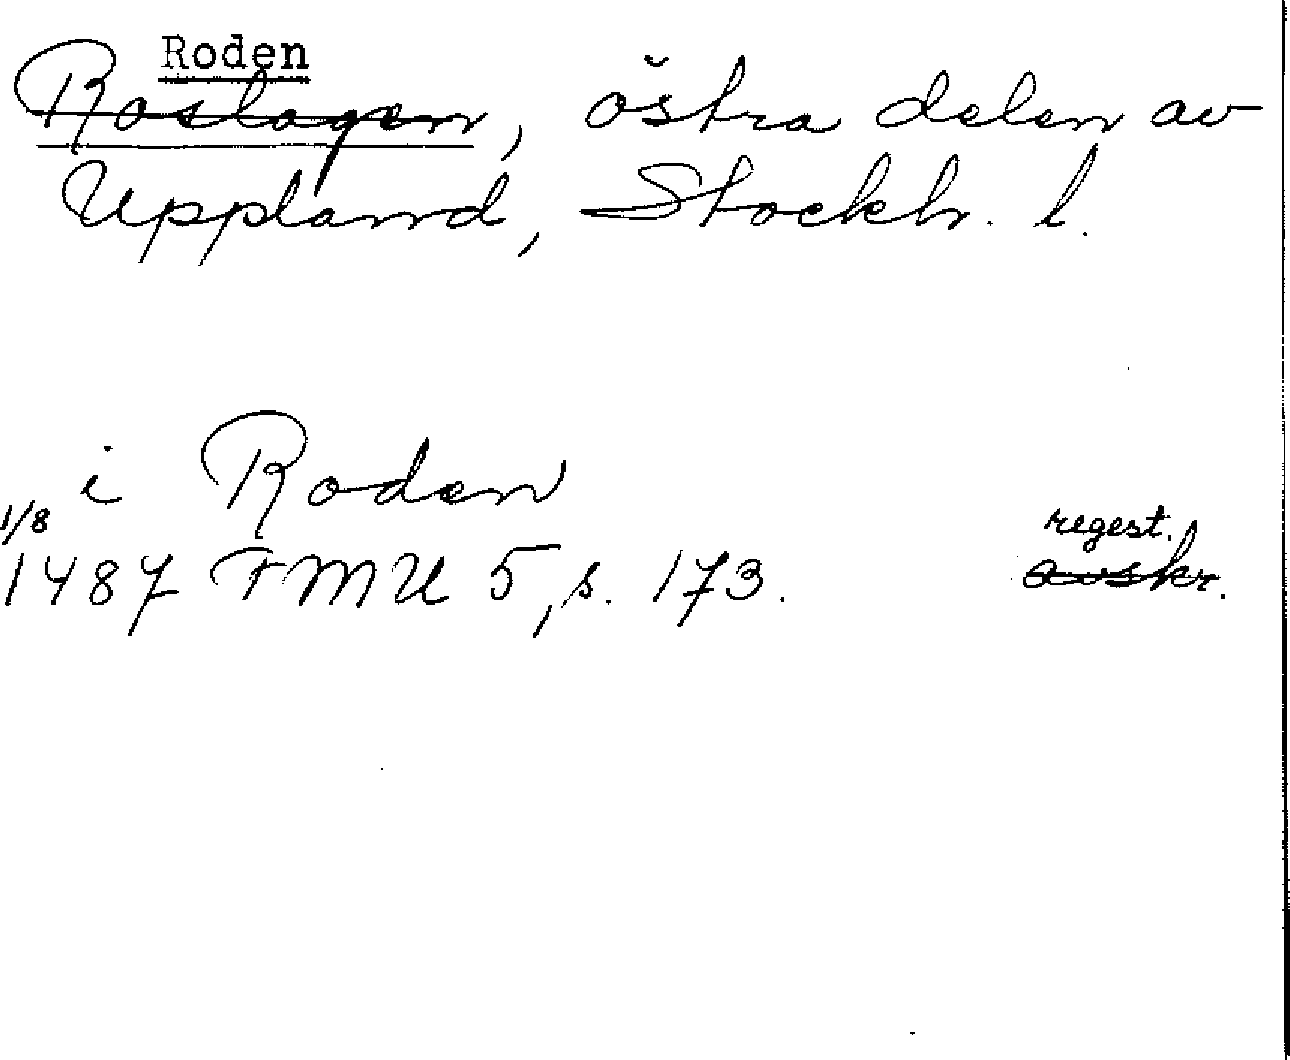 Roden
Roslagen, östra delen av
Uppland, Stockh. l.
i Roden
1/8
regest.
1487 FMU 5, s. 173.
avskr.